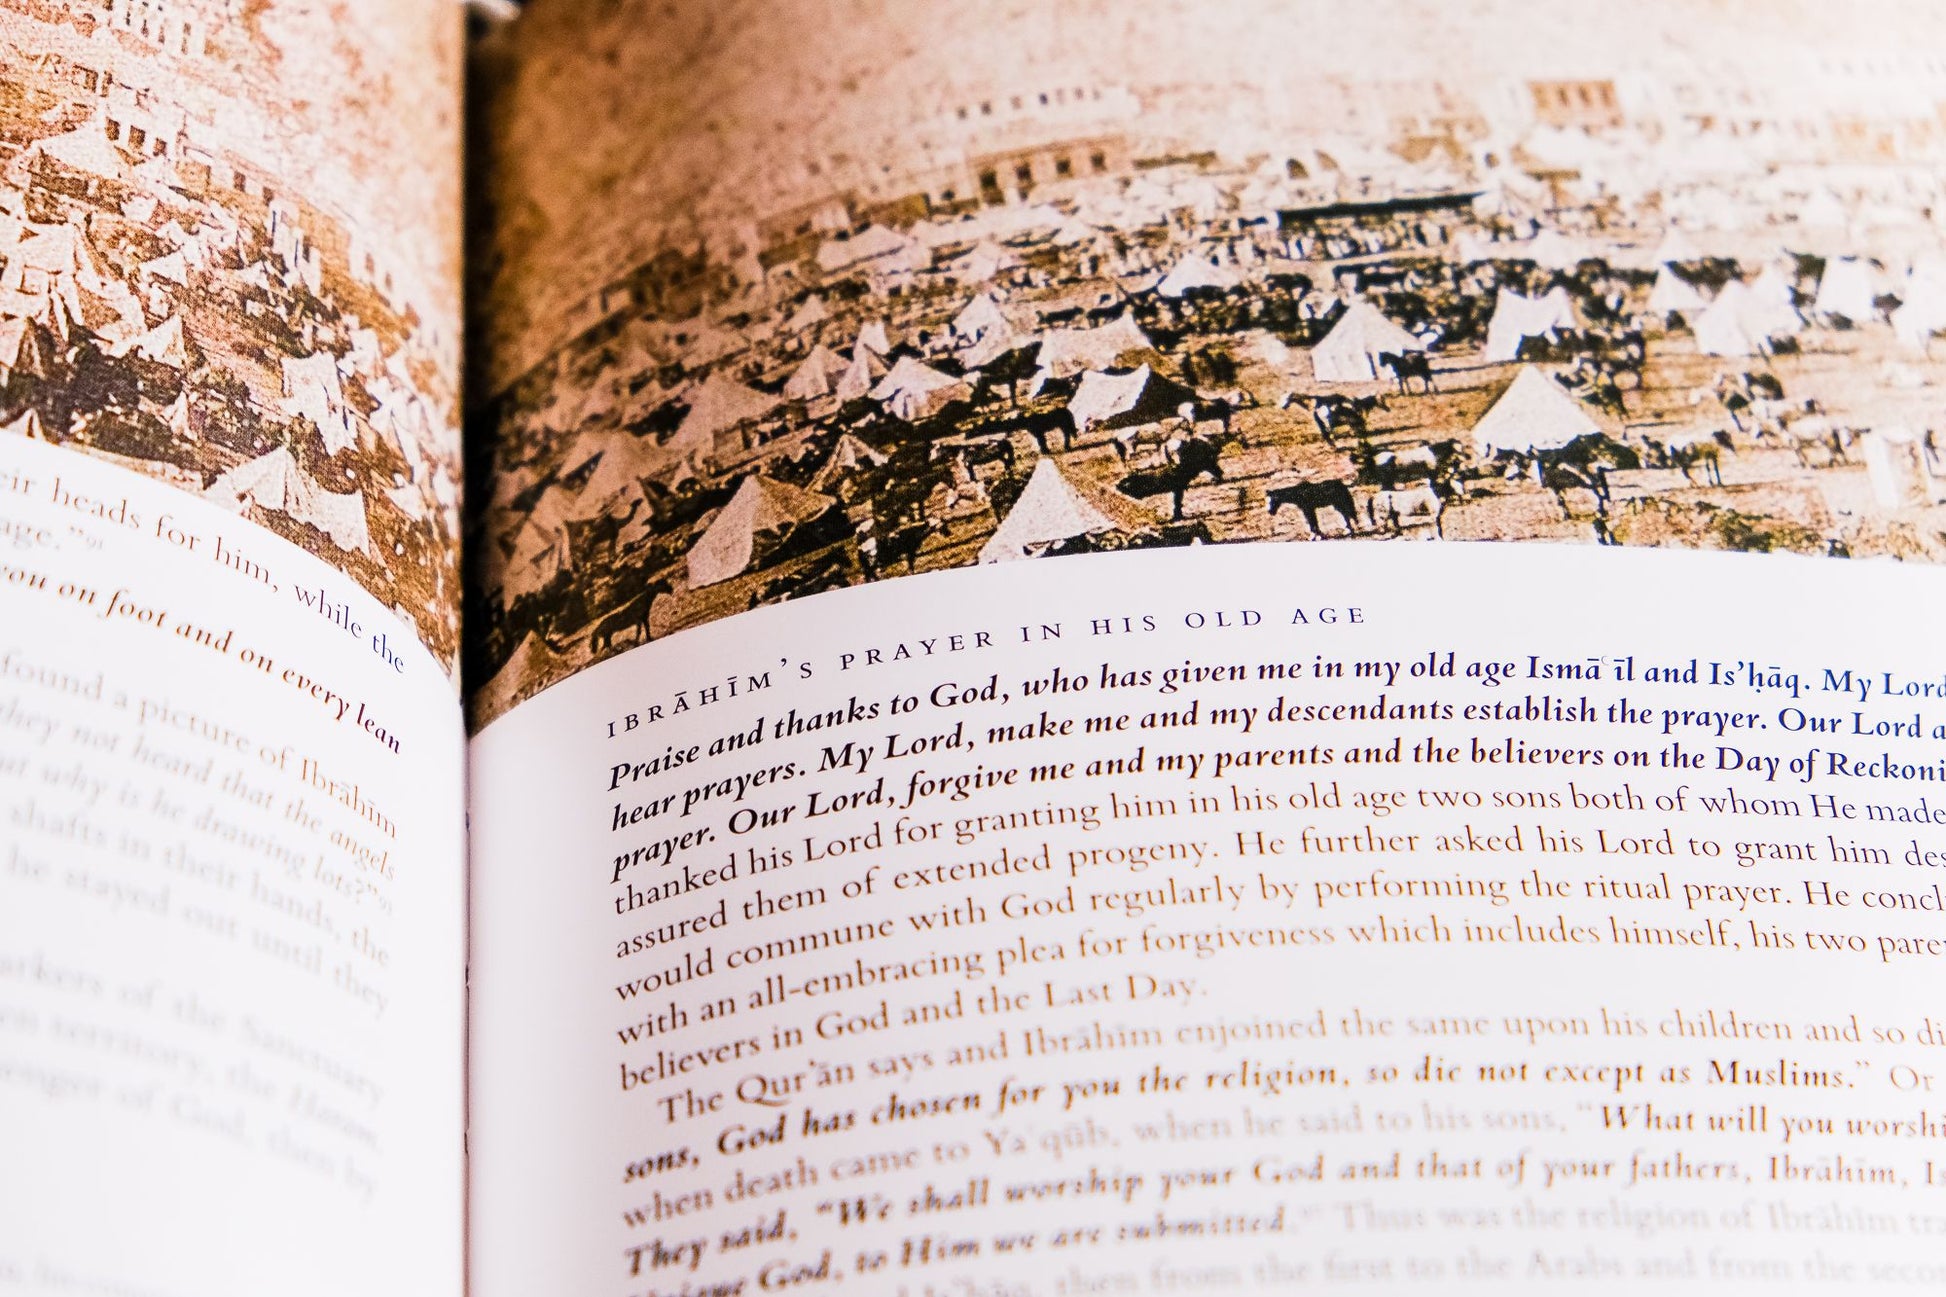 eir heads for him, while the
age.”⁹¹
you on foot and on every lean
found a picture of Ibrāhīm
they not heard that the angels
why is he drawing lots?”
shafts in their hands, the
he stayed out until they
of the Sanctuary
territory, the Haram,
of God, then by
IBRĀHĪM’S PRAYER IN HIS OLD AGE
Praise and thanks to God, who has given me in my old age Ismāʿīl and Is’ḥāq. My Lord
hear prayers. My Lord, make me and my descendants establish the prayer. Our Lord a
prayer. Our Lord, forgive me and my parents and the believers on the Day of Reckoni
thanked his Lord for granting him in his old age two sons both of whom He made
assured them of extended progeny. He further asked his Lord to grant him des
would commune with God regularly by performing the ritual prayer. He concl
with an all-embracing plea for forgiveness which includes himself, his two pare
believers in God and the Last Day.
The Qur’ān says and Ibrāhīm enjoined the same upon his children and so di
sons, God has chosen for you the religion, so die not except as Muslims.” Or
when death came to Yaʿqūb, when he said to his sons, “What will you worshi
They said, “We shall worship your God and that of your fathers, Ibrāhīm, Is
God, to Him we are submitted.” Thus was the religion of Ibrāhīm tra
then from the first to the Arabs and from the seco